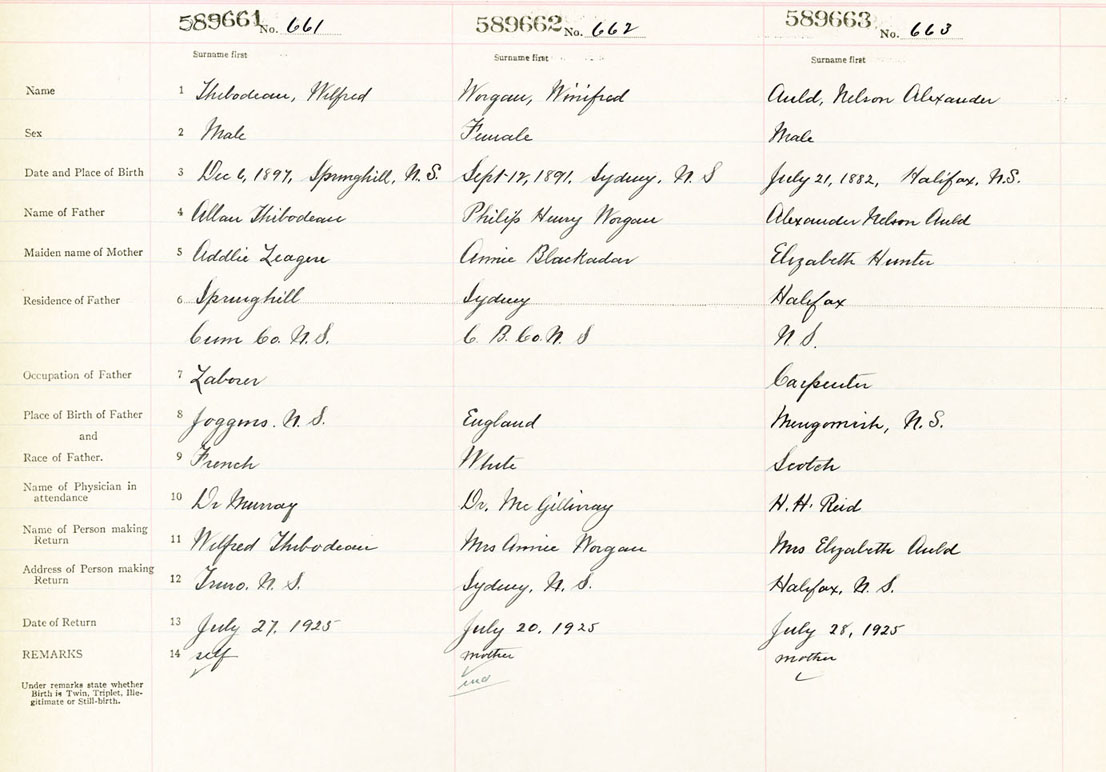 589661 No. 661 589662 No. 662 589663 No. 663
Surname first Surname first Surname first
Name 1 Thibodeau, Wilfred Worgan, Winifred Auld, Nelson Alexander
Sex 2 Male Female Male
Date and Place of Birth 3 Dec 6, 1897, Springhill, N.S. Sept 12, 1891, Sydney, N S July 21, 1882, Halifax, N.S.
Name of Father 4 Allan Thibodeau Philip Henry Worgan Alexander Nelson Auld
Maiden name of Mother 5 Addlie Annie Blackadar Elizabeth Hunter
Residence of Father 6 Springhill Sydney Halifax
Cum Co. N. S. C. B. Co. N. S N S.
Occupation of Father 7 Laborer Carpenter
Place of Birth of Father 8 Joggins. N. S. England Merigomish, N.S.
and
Race of Father. 9 French White Scotch
Name of Physician in
attendance 10 Dr Murray Dr. McGillivray H. H. Reid
Name of Person making
Return 11 Wilfred Thibodeau Mrs Annie Worgan Mrs Elizabeth Auld
Address of Person making
Return 12 Truro. N. S. Sydney, N. S. Halifax, N. S.
Date of Return 13 July 27, 1925 July 20, 1925 July 28, 1925
REMARKS 14 self mother mother
Under remarks state whether
Birth is Twin, Triplet, Ille-
gitimate or Still-birth.